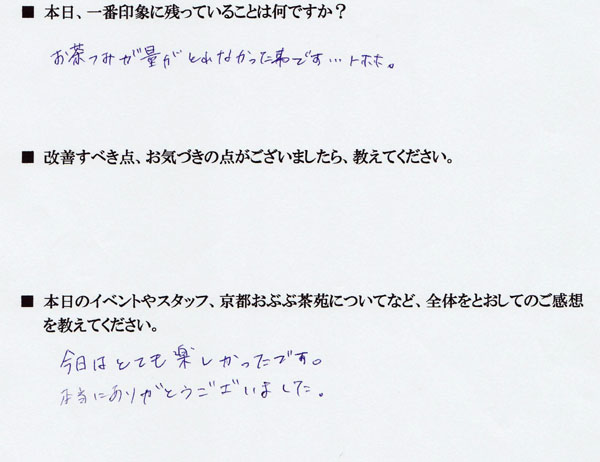 ■ 本日、一番印象に残っていることは何ですか？
お茶つみが量がとれなかった事です…トホホ。
■ 改善すべき点、お気づきの点がございましたら、教えてください。
■ 本日のイベントやスタッフ、京都おぶぶ茶苑についてなど、全体をとおしてのご感想
を教えてください。
今日はとても楽しかったです。
本当にありがとうございました。